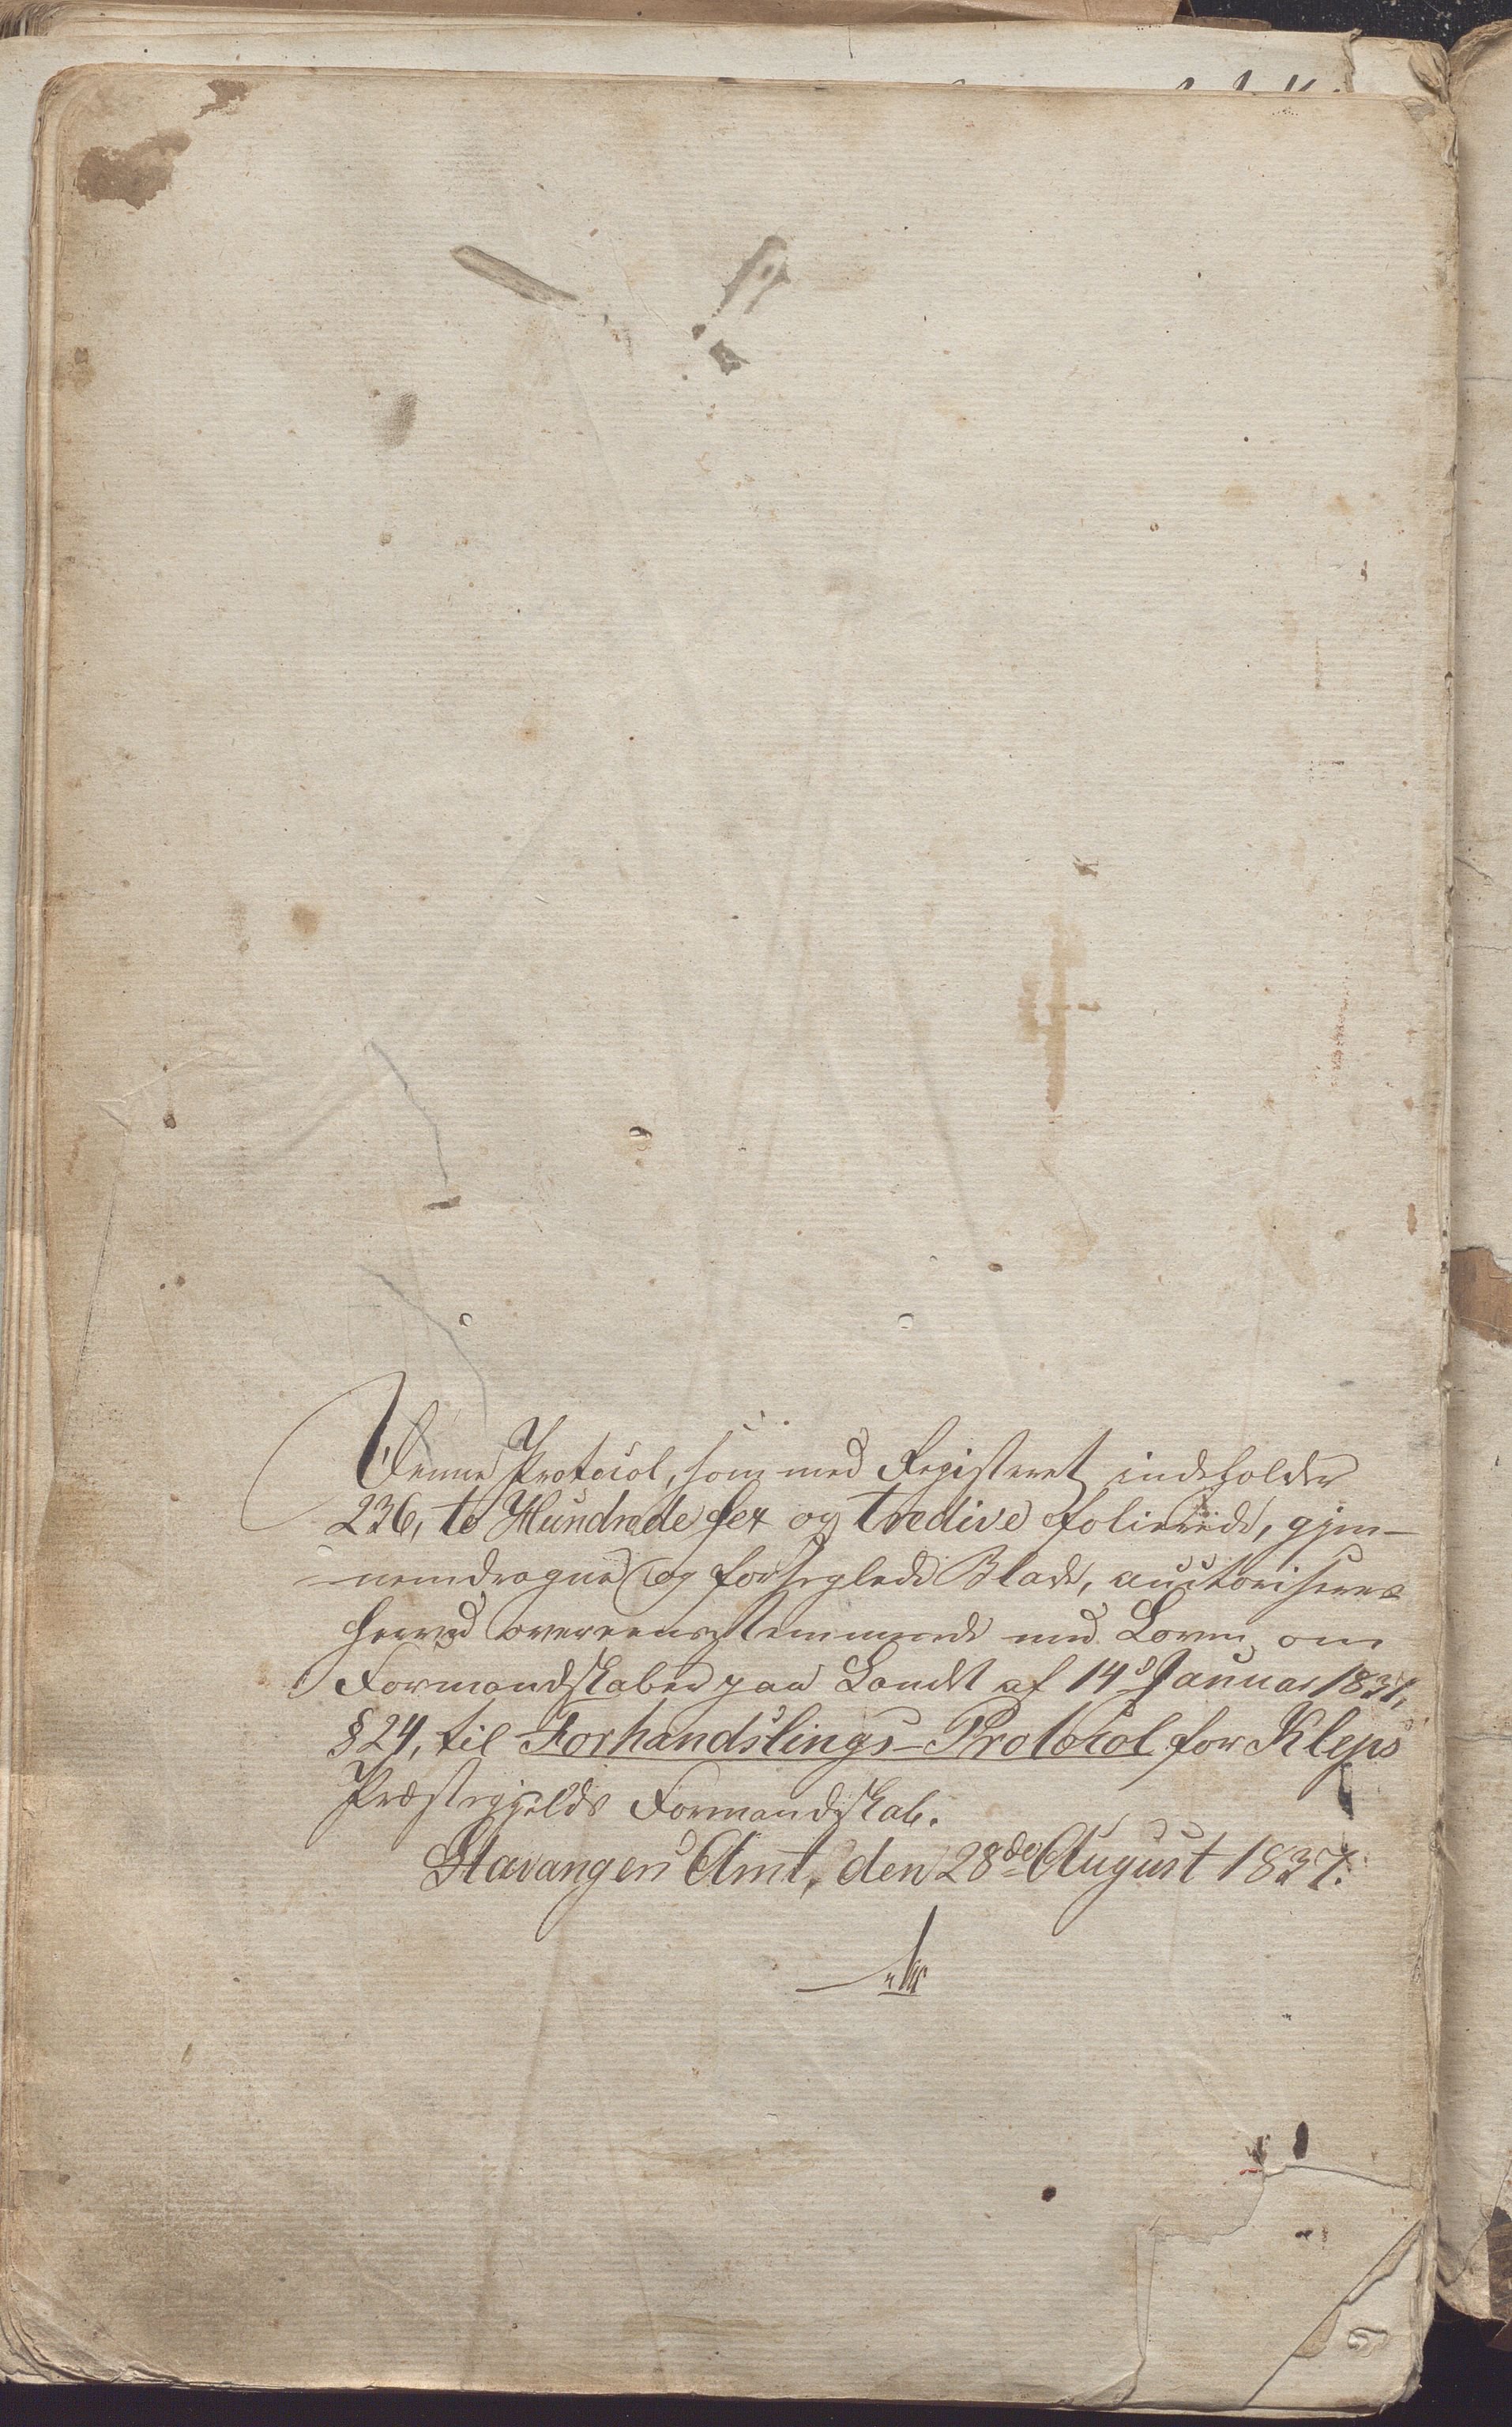 Denne Protocol, som med Registeret indeholder
236, to Hundrede sex og tredive folierede, gjen-
nemdragne og forseglede Blade, auctoriseres
herved overeensstemmende med Loven om
Formandskaber paa Landet af 14d Januar 1837,
§ 24, til Forhandslings-Protocol for Kleps
Præstegjelds Formandskab.
Stavanger Amt, den 28de August 1837.